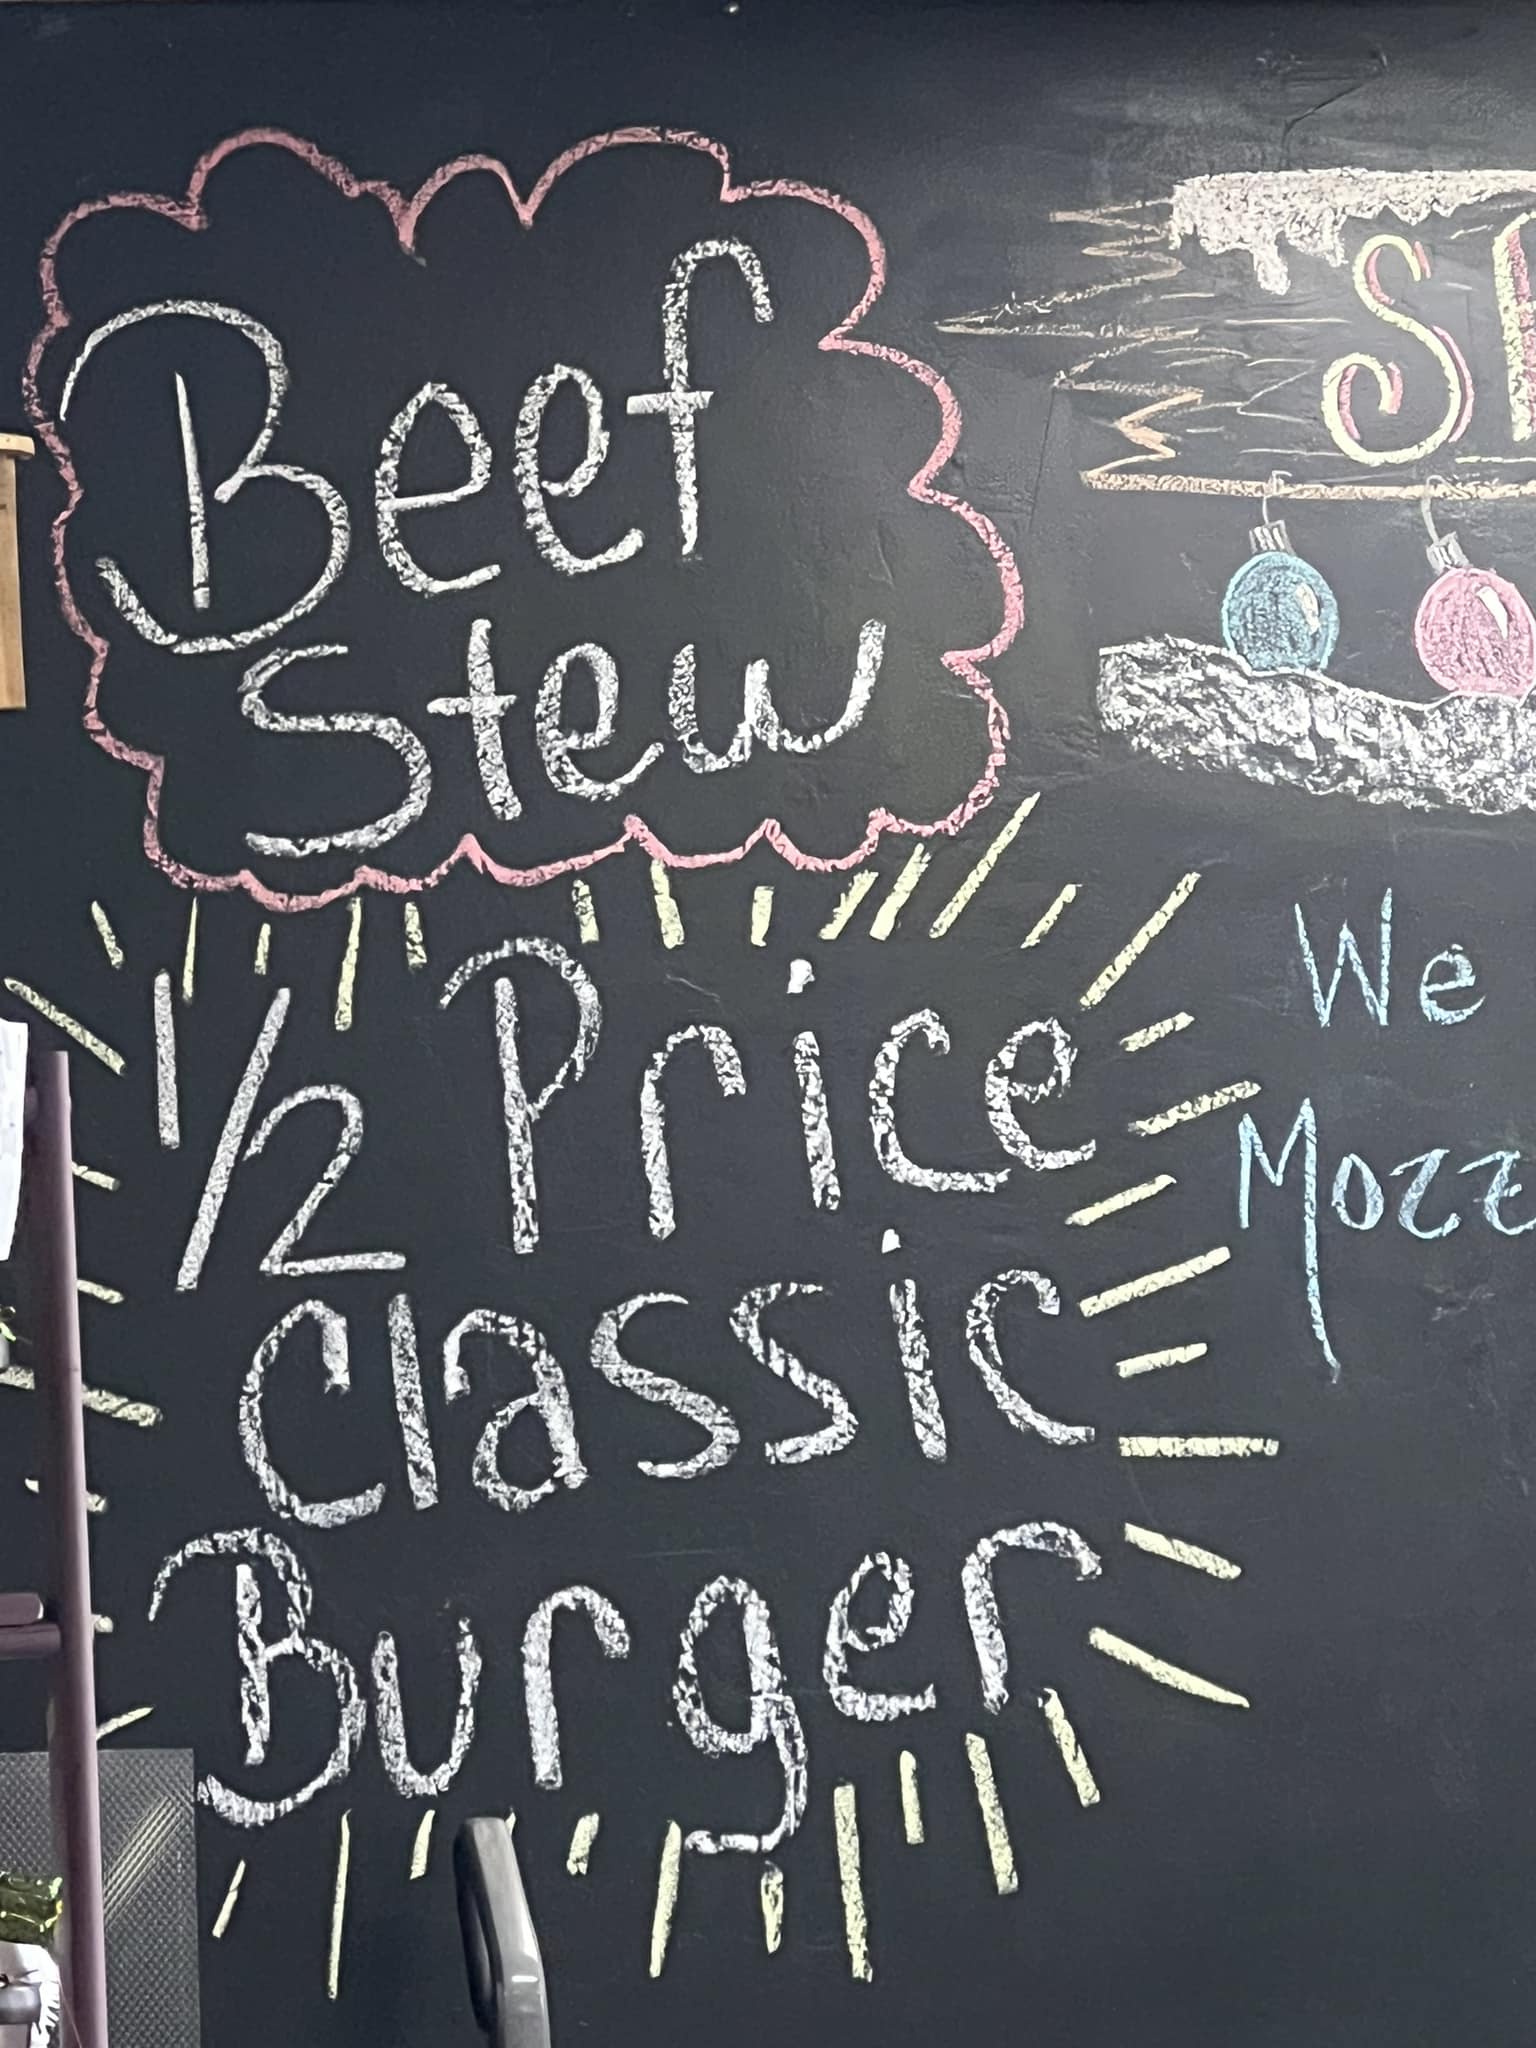 Beef
Stew
1/2 Price
Classic
Burger
S
We
Mozz